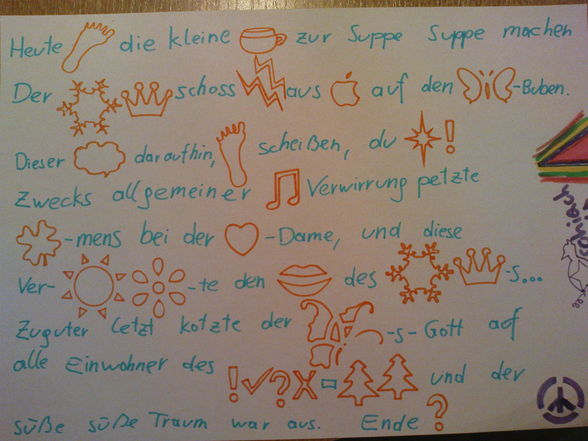 Heute die kleine zur Suppe Suppe machen
Der schoss aus auf den -Buben.
Dieser daraufhin, scheißen, du !
Zwecks allgemeiner Verwirrung petzte
-mens bei der -Dame, und diese
Ver- -te den des -s...
Zuguter letzt kotzte der -s-Gott auf
alle Einwohner des !✓?X- und der
süße süße Traum war aus. Ende ?